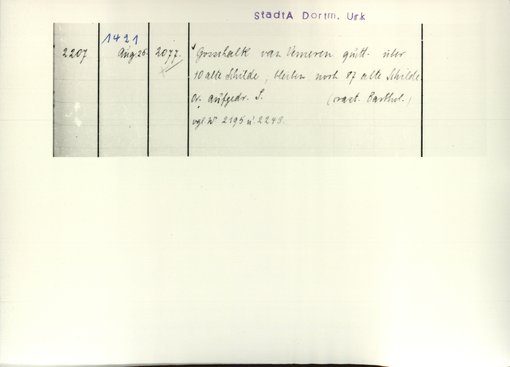 StadtA Dortm. Urk
1421
2207 Aug. 26. 2077. Gosschalk van Vemeren quitt. über
10 alte Schilde, bleiben noch 87 alte Schilde.
Or. aufgedr. S. (crast. Barthol.)
vgl. N 2195 u. 2248.